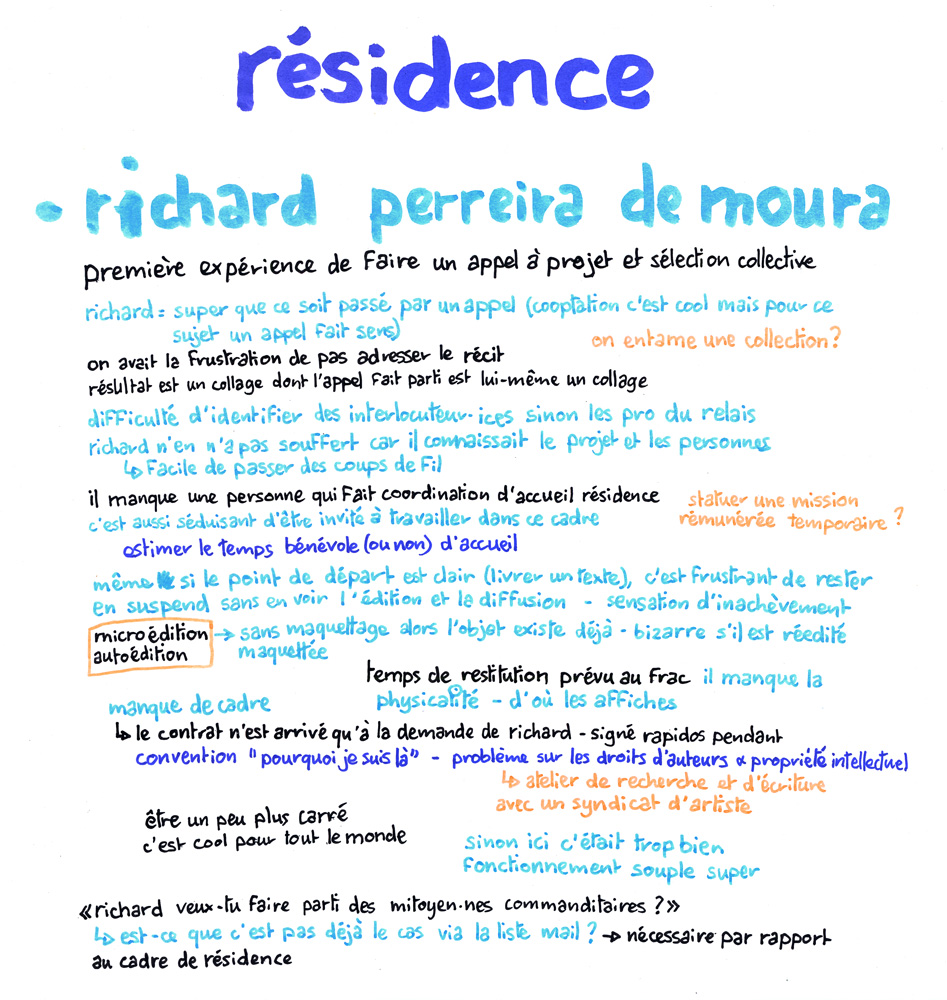 résidence
• richard perreira de moura
première expérience de faire un appel à projet et sélection collective
richard = super que ce soit passé par un appel (cooptation c'est cool mais pour ce
sujet un appel fait sens)
on entame une collection?
on avait la frustration de pas adresser le récit
résultat est un collage dont l'appel fait parti est lui-même un collage
difficulté d'identifier des interlocuteur·ices sinon les pro du relais
richard n'en n'a pas souffert car il connaissait le projet et les personnes
↳ facile de passer des coups de fil
il manque une personne qui fait coordination d'accueil résidence
statuer une mission
c'est aussi séduisant d'être invité à travailler dans ce cadre
rémunérée temporaire ?
estimer le temps bénévole (ou non) d'accueil
même si le point de départ est clair (livrer un texte), c'est frustrant de rester
en suspend sans en voir l'édition et la diffusion - sensation d'inachèvement
microédition → sans maquettage alors l'objet existe déjà - bizarre s'il est réédité
autoédition maquettée
temps de restitution prévu au frac il manque la
physicalité - d'où les affiches
manque de cadre
↳ le contrat n'est arrivé qu'à la demande de richard - signé rapidos pendant
convention "pourquoi je suis là" - problème sur les droits d'auteurs & propriété intellectuel
↳ atelier de recherche et d'écriture
avec un syndicat d'artiste
être un peu plus carré
c'est cool pour tout le monde
sinon ici c'était trop bien
fonctionnement souple super
«richard veux-tu faire parti des mitoyen·nes commanditaires ?»
↳ est-ce que c'est pas déjà le cas via la liste mail ? → nécessaire par rapport
au cadre de résidence